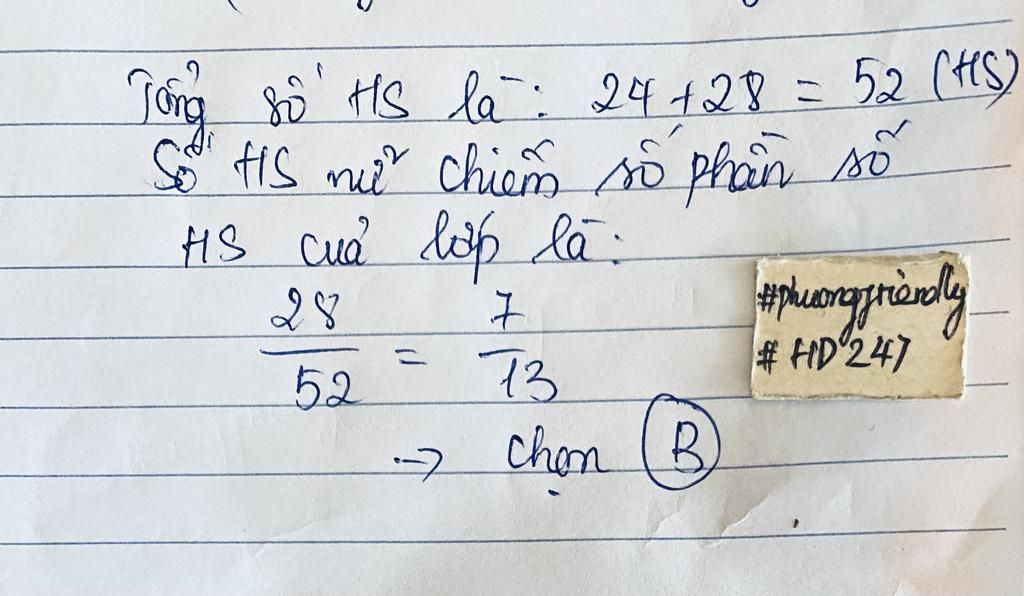 Tổng số HS là: 24 + 28 = 52 (HS)
Số HS nữ chiếm số phần số
HS của lớp là:
28/52 = 7/13
→ Chọn B
#phuongfriendly
# HD 247